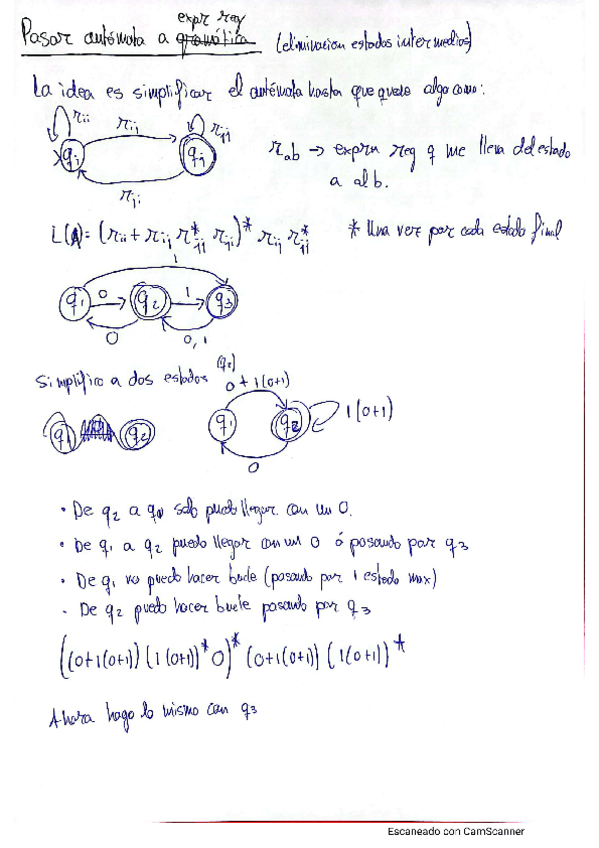 expr reg
Pasar autómata a gramática (eliminacion estados intermedios)
La idea es simplificar el autómata hasta que quede algo como:
rii rij rjj
qi qj
rji
rab → expr reg q me lleva del estado
a al b.
L(A) = (rii + rij rjj* rji)* rij rjj* * Una vez por cada estado final
1
q1 0 q2 1 q3
0 0,1
Simplifico a dos estados (q2)
0+1(0+1)
q1 q2 q1 q2 1(0+1)
0
· De q2 a q1 solo puedo llegar con un 0.
· De q1 a q2 puedo llegar con un 0 ó pasando por q3
· De q1 no puedo hacer bucle (pasando por 1 estado max)
· De q2 puedo hacer bucle pasando por q3
((0+1(0+1)) (1(0+1))* 0)* (0+1(0+1)) (1(0+1))*
Ahora hago lo mismo con q3
Escaneado con CamScanner